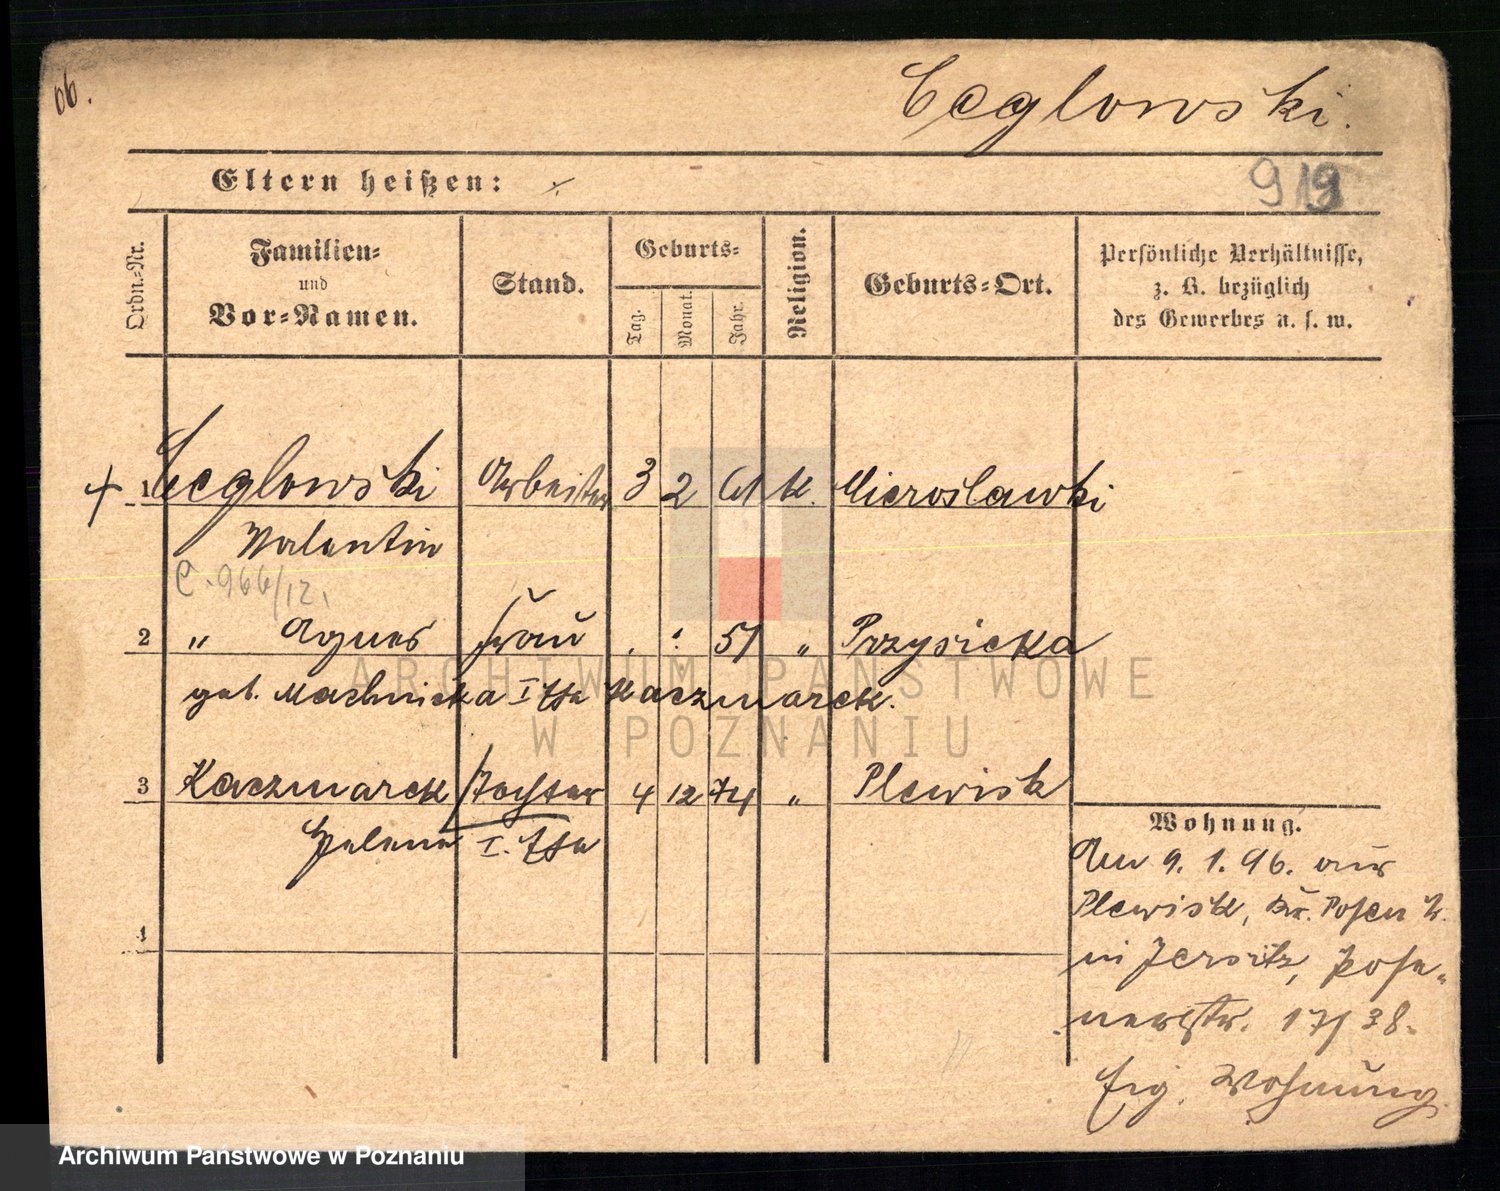 66.
Ceglowski.
Eltern heißen:
919
Ordn.-Nr.
Familien-
und
Vor-Namen.
Stand.
Geburts-
Tag.
Monat.
Jahr.
Religion.
Geburts-Ort.
Persönliche Verhältnisse,
z. B. bezüglich
des Gewerbes u. s. w.
1 Ceglowski Arbeiter 3 2 61 k. Mieroslawki
Valentin
C. 966/12.
2 " Agnes Frau 51 " Przysieka
geb. Machnicka I Ehe Kaczmarek.
3 Kaczmarek Tochter 4 12 74 " Plewisk
Helene I. Ehe
4
Wohnung.
Am 9. 1. 96. aus
Plewisk, Kr. Posen W.
in Jersitz, Pose-
nerstr. 17/38.
Eig. Wohnung.
ARCHIWUM PAŃSTWOWE
W POZNANIU
Archiwum Państwowe w Poznaniu